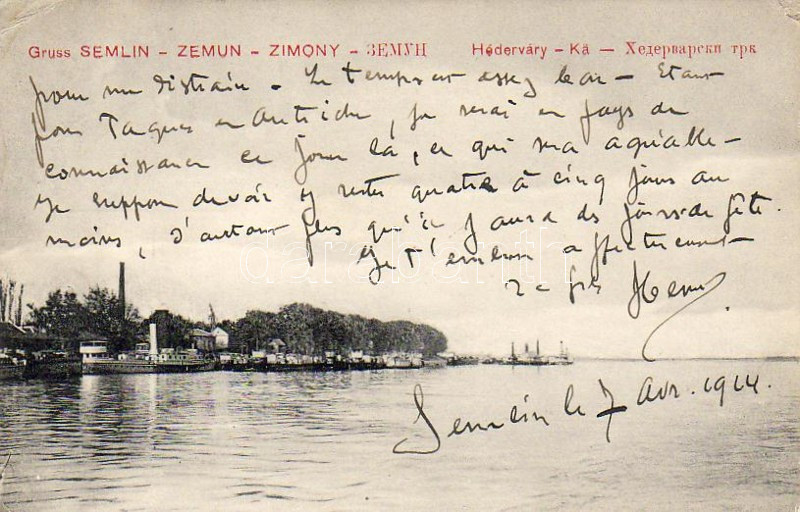 Gruss SEMLIN – ZEMUN – ZIMONY – ЗЕМУН Héderváry – Kä — Хедерварски трк
pour me distraire – Le temps est assez beau – Etant
pour Pâques en Autriche, je serai en pays de
connaissance ce jour là, ce qui sera agréable –
Je suppose devoir y rester quatre à cinq jours au
moins, d'autant plus qu'il y aura des jours de fête.
Je t'embrasse affectueusement
Semlin le 7 Avr. 1914.
darabanth